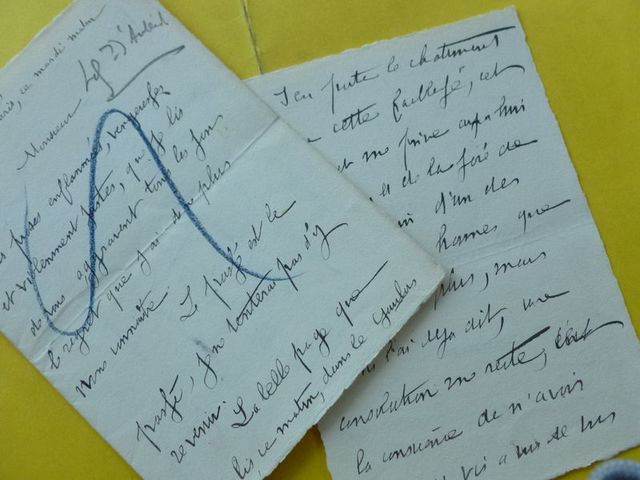 Paris, ce mardi matin
Monsieur
proses enflammées, vengeresses
et violemment justes, que je lis
de vous aggravent tous les jours
le regret que j'ai de ne plus
vous connaître. Le passé est le
passé, je ne tenterai pas d'y
revenir.
La belle page que
lis, ce matin, dans le
J'en porte le châtiment
cette
et me prive aujourd'hui
et de la joie de
d'un des
hommes que
plus, mais
j'ai déjà dit, une
consolation me reste, c'est
la conscience de n'avoir
vis à vis de